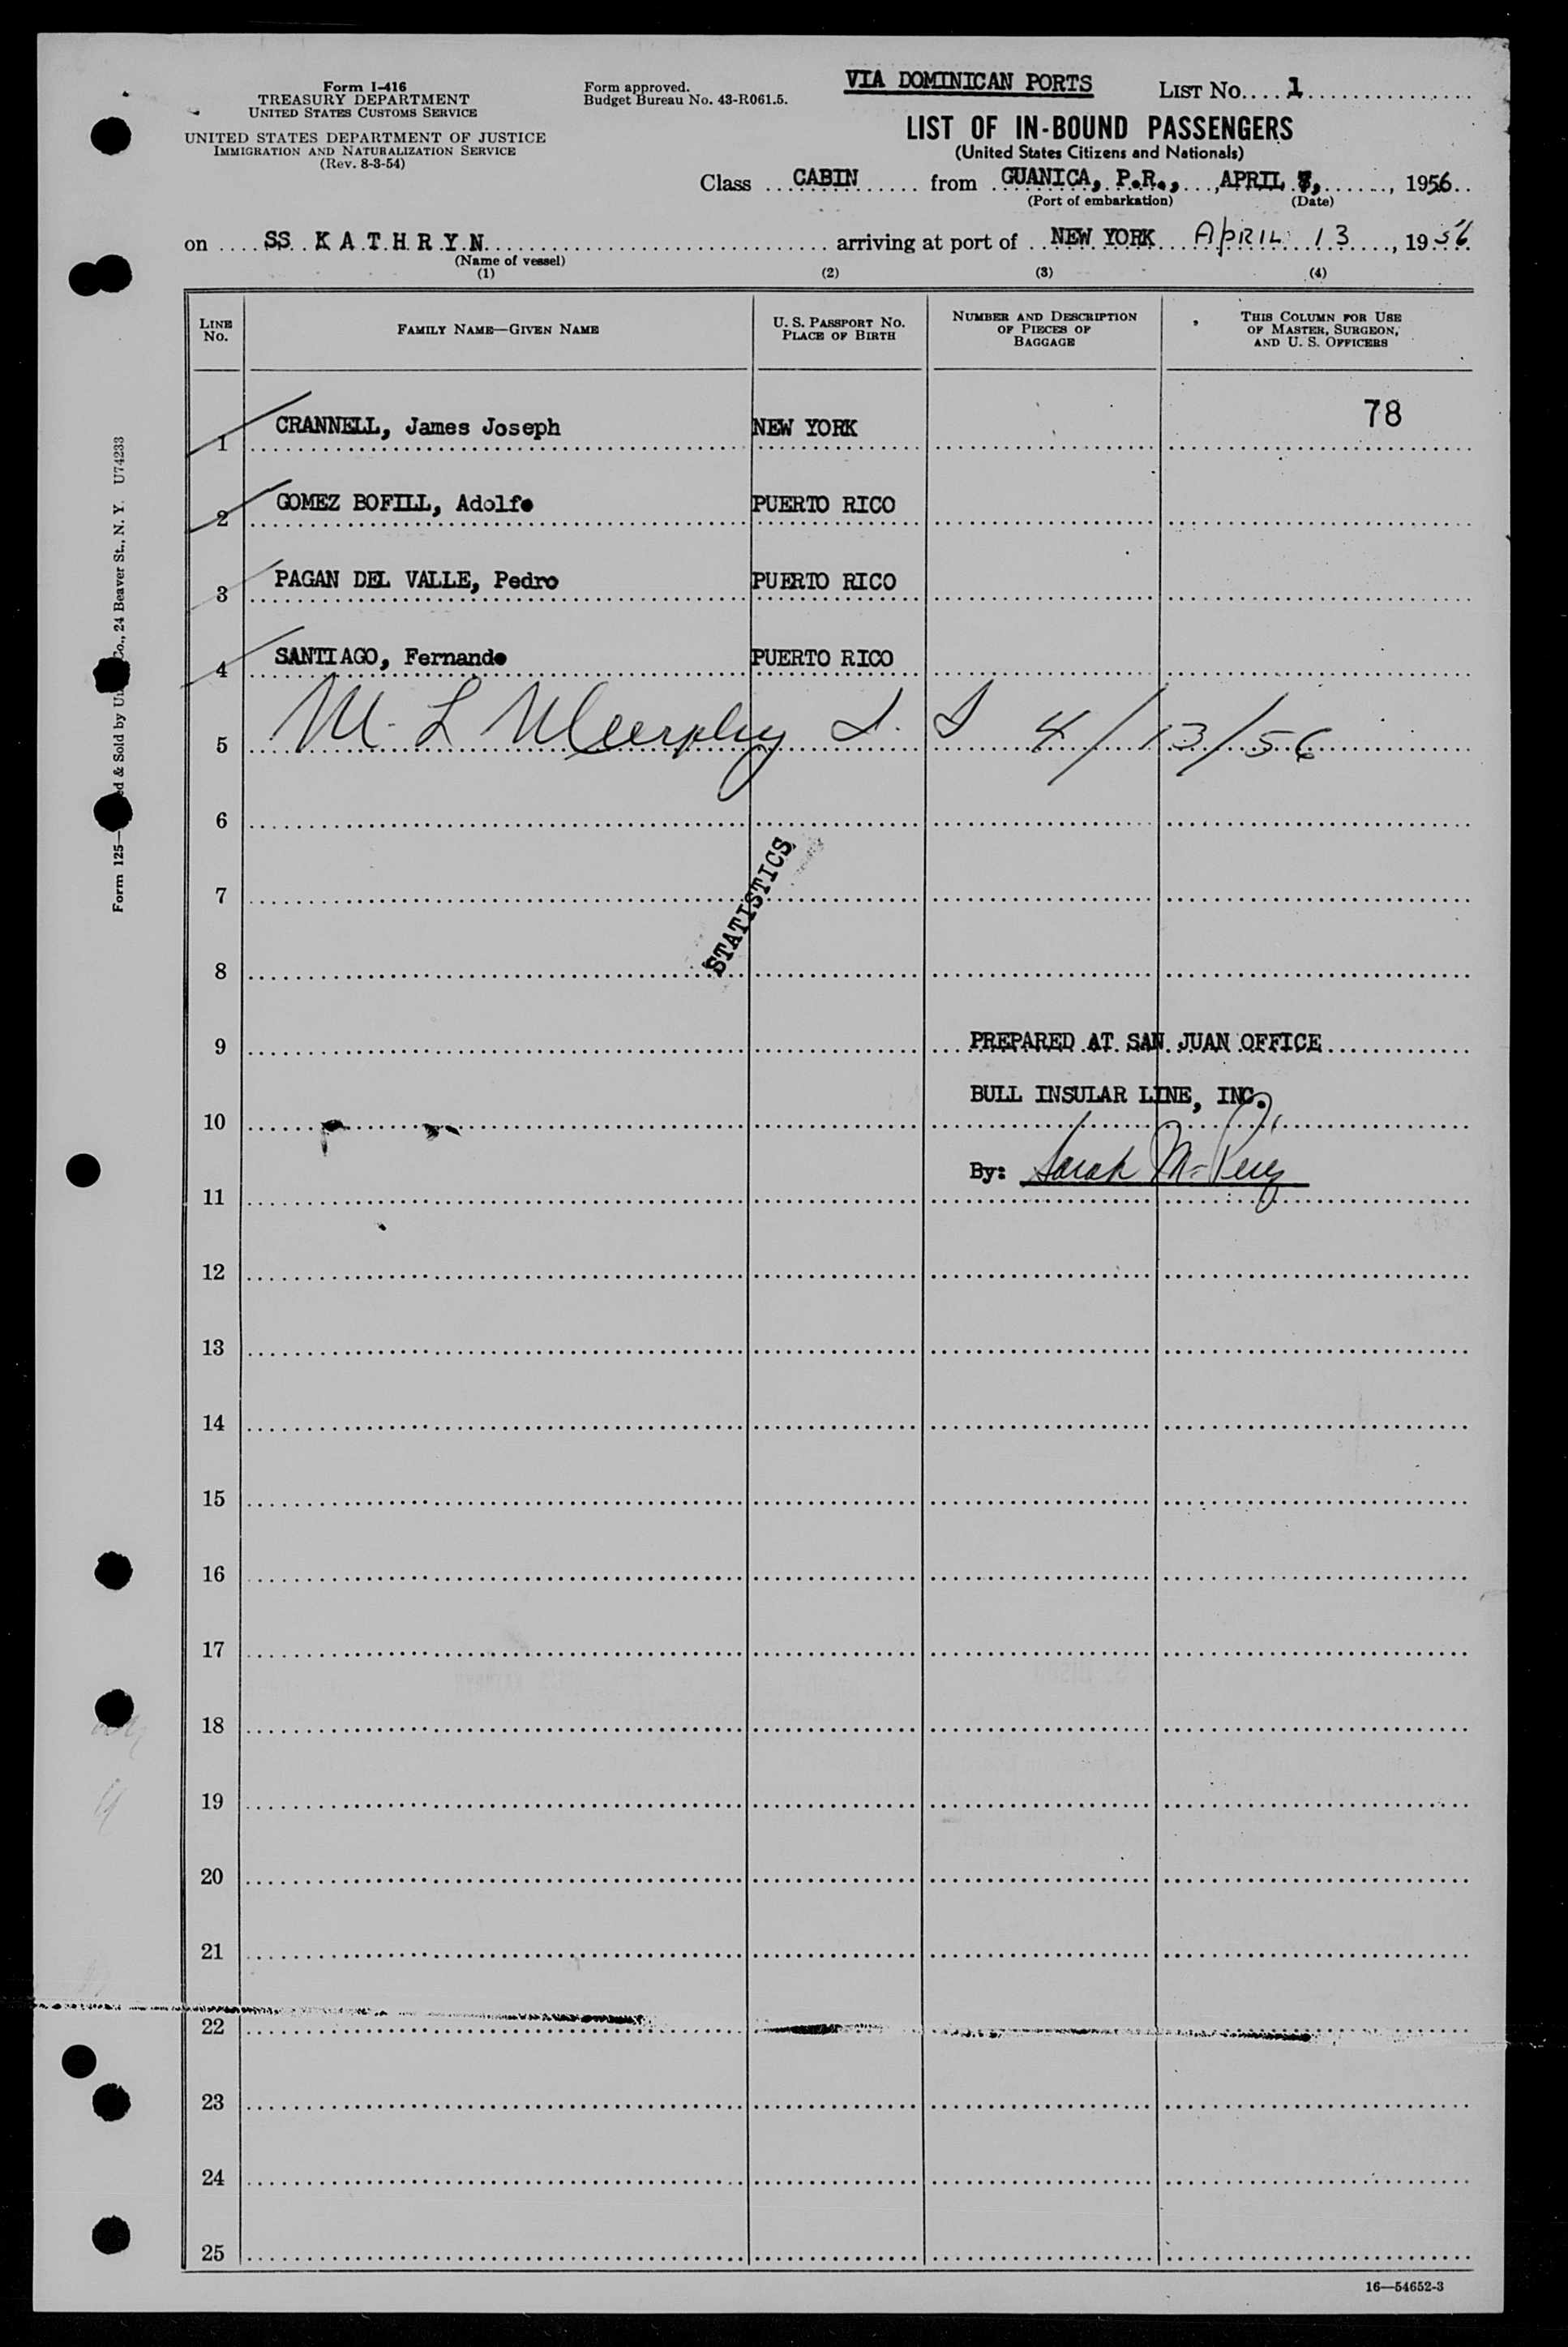 Form I-416
TREASURY DEPARTMENT
UNITED STATES CUSTOMS SERVICE
UNITED STATES DEPARTMENT OF JUSTICE
IMMIGRATION AND NATURALIZATION SERVICE
(Rev. 8-3-54)
Form approved.
Budget Bureau No. 43-R061.5.
VIA DOMINICAN PORTS
LIST No. 1
LIST OF IN-BOUND PASSENGERS
(United States Citizens and Nationals)
Class CABIN from GUANICA, P.R., APRIL , 1956
(Port of embarkation) (Date)
on SS K A T H R Y N arriving at port of NEW YORK APRIL 13, 1956
(Name of vessel)
(1) (2) (3) (4)
LINE No. FAMILY NAME—GIVEN NAME U. S. PASSPORT NO. PLACE OF BIRTH NUMBER AND DESCRIPTION OF PIECES OF BAGGAGE THIS COLUMN FOR USE OF MASTER, SURGEON, AND U. S. OFFICERS
78
1 CRANNELL, James Joseph NEW YORK
2 GOMEZ BOFILL, Adolfo PUERTO RICO
3 PAGAN DEL VALLE, Pedro PUERTO RICO
4 SANTIAGO, Fernando PUERTO RICO
5 M. L Murphy 4/13/56
6
7
STATISTICS
8
9 PREPARED AT SAN JUAN OFFICE
BULL INSULAR LINE, INC.
10
By: Sarah M.
11
12
13
14
15
16
17
18
19
20
21
22
23
24
25
16—54652-3
Form 125— ed & Sold by Co., 24 Beaver St., N. Y. U74233